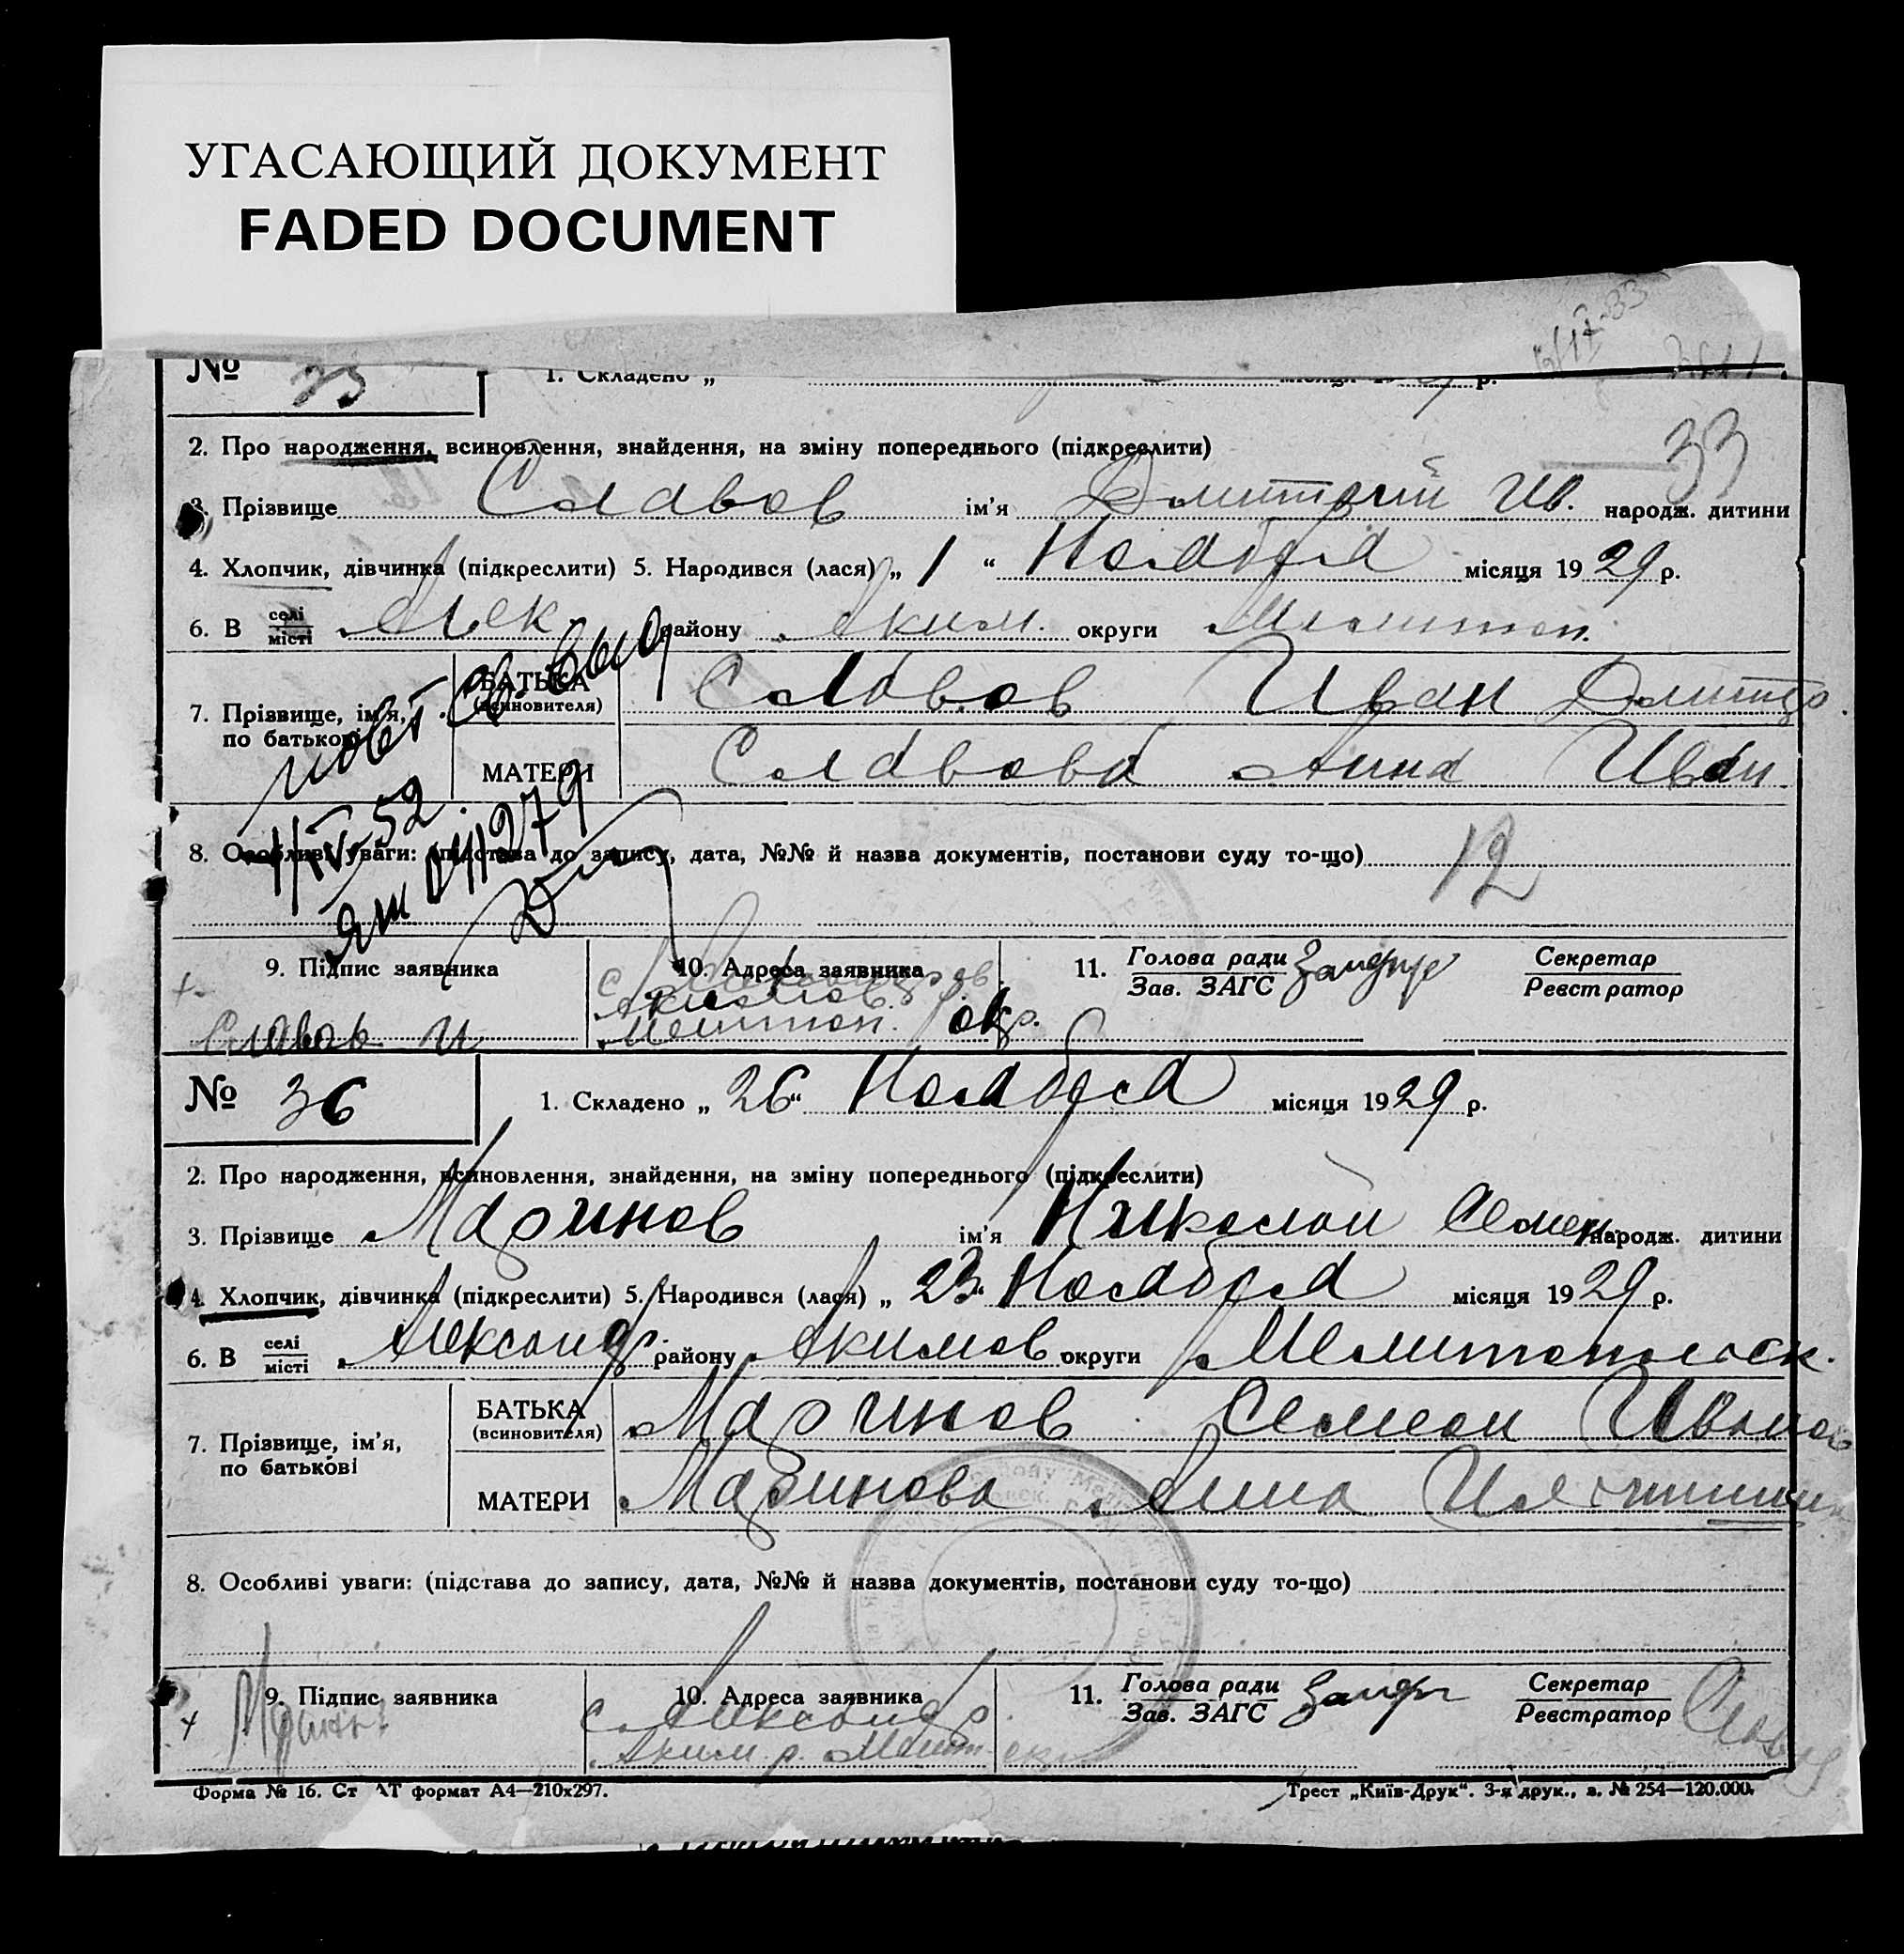 УГАСАЮЩИЙ ДОКУМЕНТ
FADED DOCUMENT
№ 1. Складено „ місяця 19 р.
33
2. Про народження, всиновлення, знайдення, на зміну попереднього (підкреслити)
3. Прізвище Славов ім'я Дмитрий Ив. народж. дитини
4. Хлопчик, дівчинка (підкреслити) 5. Народився (лася) „ 1 “ Ноября місяця 1929 р.
6. В селі/місті Алек. району Аким. округи Мелитоп.
7. Прізвище, ім'я, по батькові
БАТЬКА (всиновителя) Славов Иван Дмитр.
МАТЕРИ Славова Анна Иван.
повт. св. выд
52
8. Особливі уваги: (підстава до запису, дата, №№ й назва документів, постанови суду то-що) 12
9. Підпис заявника 10. Адреса заявника 11. Голова ради/Зав. ЗАГС Секретар/Реєстратор
Славов И Мелитоп. окр.
№ 36 1. Складено „ 26 “ Ноября місяця 1929 р.
2. Про народження, всиновлення, знайдення, на зміну попереднього (підкреслити)
3. Прізвище Маринов ім'я Николай Семен народж. дитини
4. Хлопчик, дівчинка (підкреслити) 5. Народився (лася) „ 23 “ Ноября місяця 1929 р.
6. В селі/місті Александр. району Акимов округи Мелитопольск.
7. Прізвище, ім'я, по батькові
БАТЬКА (всиновителя) Маринов Семен Иванов
МАТЕРИ Маринова Анна
8. Особливі уваги: (підстава до запису, дата, №№ й назва документів, постанови суду то-що)
9. Підпис заявника 10. Адреса заявника 11. Голова ради/Зав. ЗАГС Секретар/Реєстратор
с. Александр.
Аким. р. Мелит
Форма № 16. Ст АТ формат А4—210х297. Трест „Київ-Друк“. 3-я друк., з. № 254—120.000.